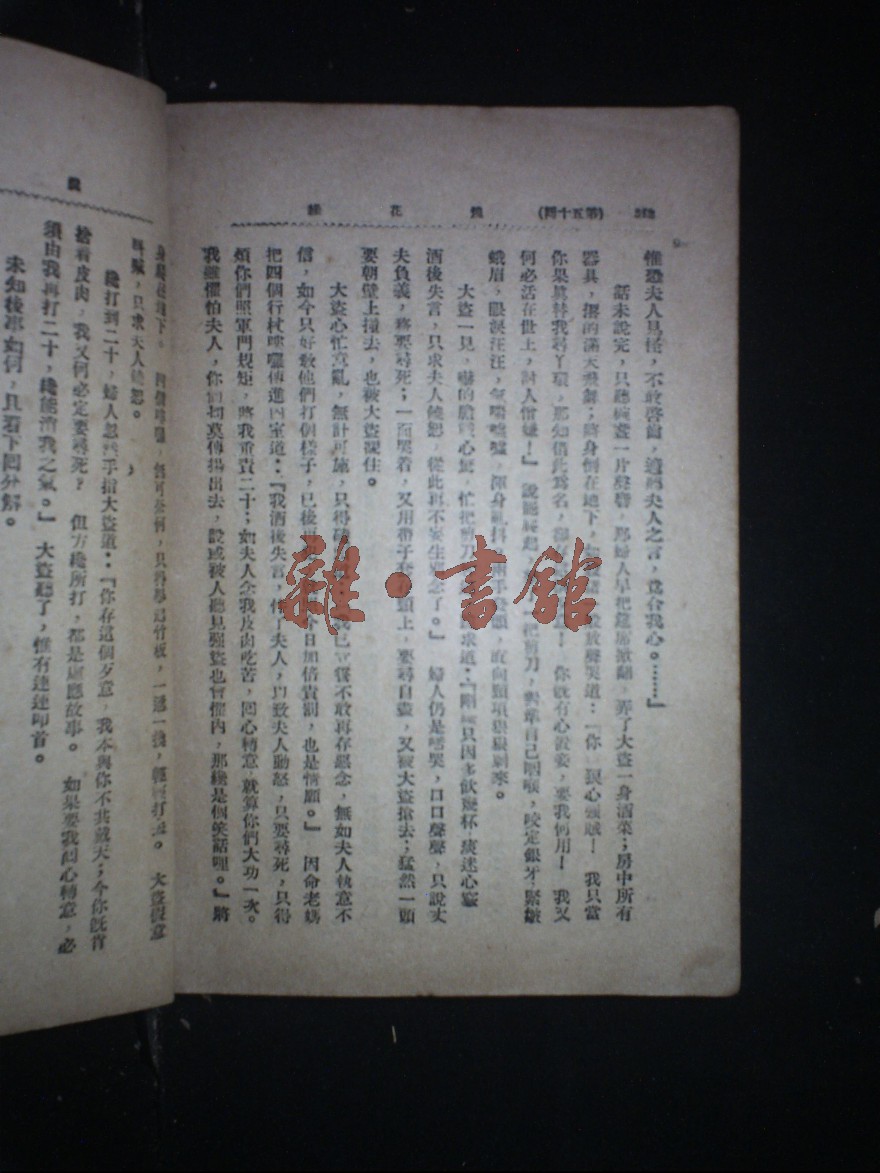 (第五十回) 鏡 花 緣
惟恐夫人見怪,不敢啓齒,適聽夫人之言,竟合我心。……』
話未說完,只聽碗盞一片聲響,那婦人早把筵席掀翻,弄了大盜一身酒菜;房中所有
器具,撂的滿天飛舞;將身倒在地下,放聲哭道:『你 狠心強賊! 我只當
你果眞替我尋丫環,那知借此爲名,! 你旣有心置妾,要我何用! 我又
何必活在世上,討人憎嫌!』 說罷爬起,把剪刀,對準自己咽喉,咬定銀牙,緊皺
蛾眉,眼淚汪汪,氣喘噓噓,渾身亂抖,直向頸項狠狠刺來。
大盜一見,嚇的膽戰心驚,忙把剪刀求道:『剛纔只因多飲幾杯,痰迷心竅
酒後失言,只求夫人饒恕,從此再不妄生惡念了。』 婦人仍是啼哭,口口聲聲,只說丈
夫負義,務要尋死;一面哭着,又用帶子套在頸上,要尋自盡,又被大盜搶去;猛然一頭
要朝壁上撞去,也被大盜攔住。
大盜心忙意亂,無計可施,只得我已立誓不敢再存惡念,無如夫人執意不
信,如今只好敎他們打個樣子,已後今日加倍責罰,也是情願。』 因命老媽
把四個行杖嘍囉傳進內室道:『我酒後失言,忤了夫人,以致夫人動怒,只要尋死,只得
煩你們照軍門規矩,將我重責二十;如夫人念我皮肉吃苦,回心轉意,就算你們大功一次。
我雖懼怕夫人,你們切莫傳揚出去,設或被人聽見强盜也會懼內,那纔是個笑話哩。』將
身爬在地下。四個嘍囉,無可奈何,只得舉起竹板,一遞一換,輕輕打去。 大盜假意
叫喊,只求夫人饒恕。
纔打到二十,婦人忽然手指大盜道:『你存這個歹意,我本與你不共戴天;今你旣肯
捨着皮肉,我又何必定要尋死? 但方纔所打,都是虛應故事。 如果要我回心轉意,必
須由我再打二十,纔能消我之氣。』 大盜聽了,惟有連連叩首。
未知後事如何,且看下回分解。
雜·書館